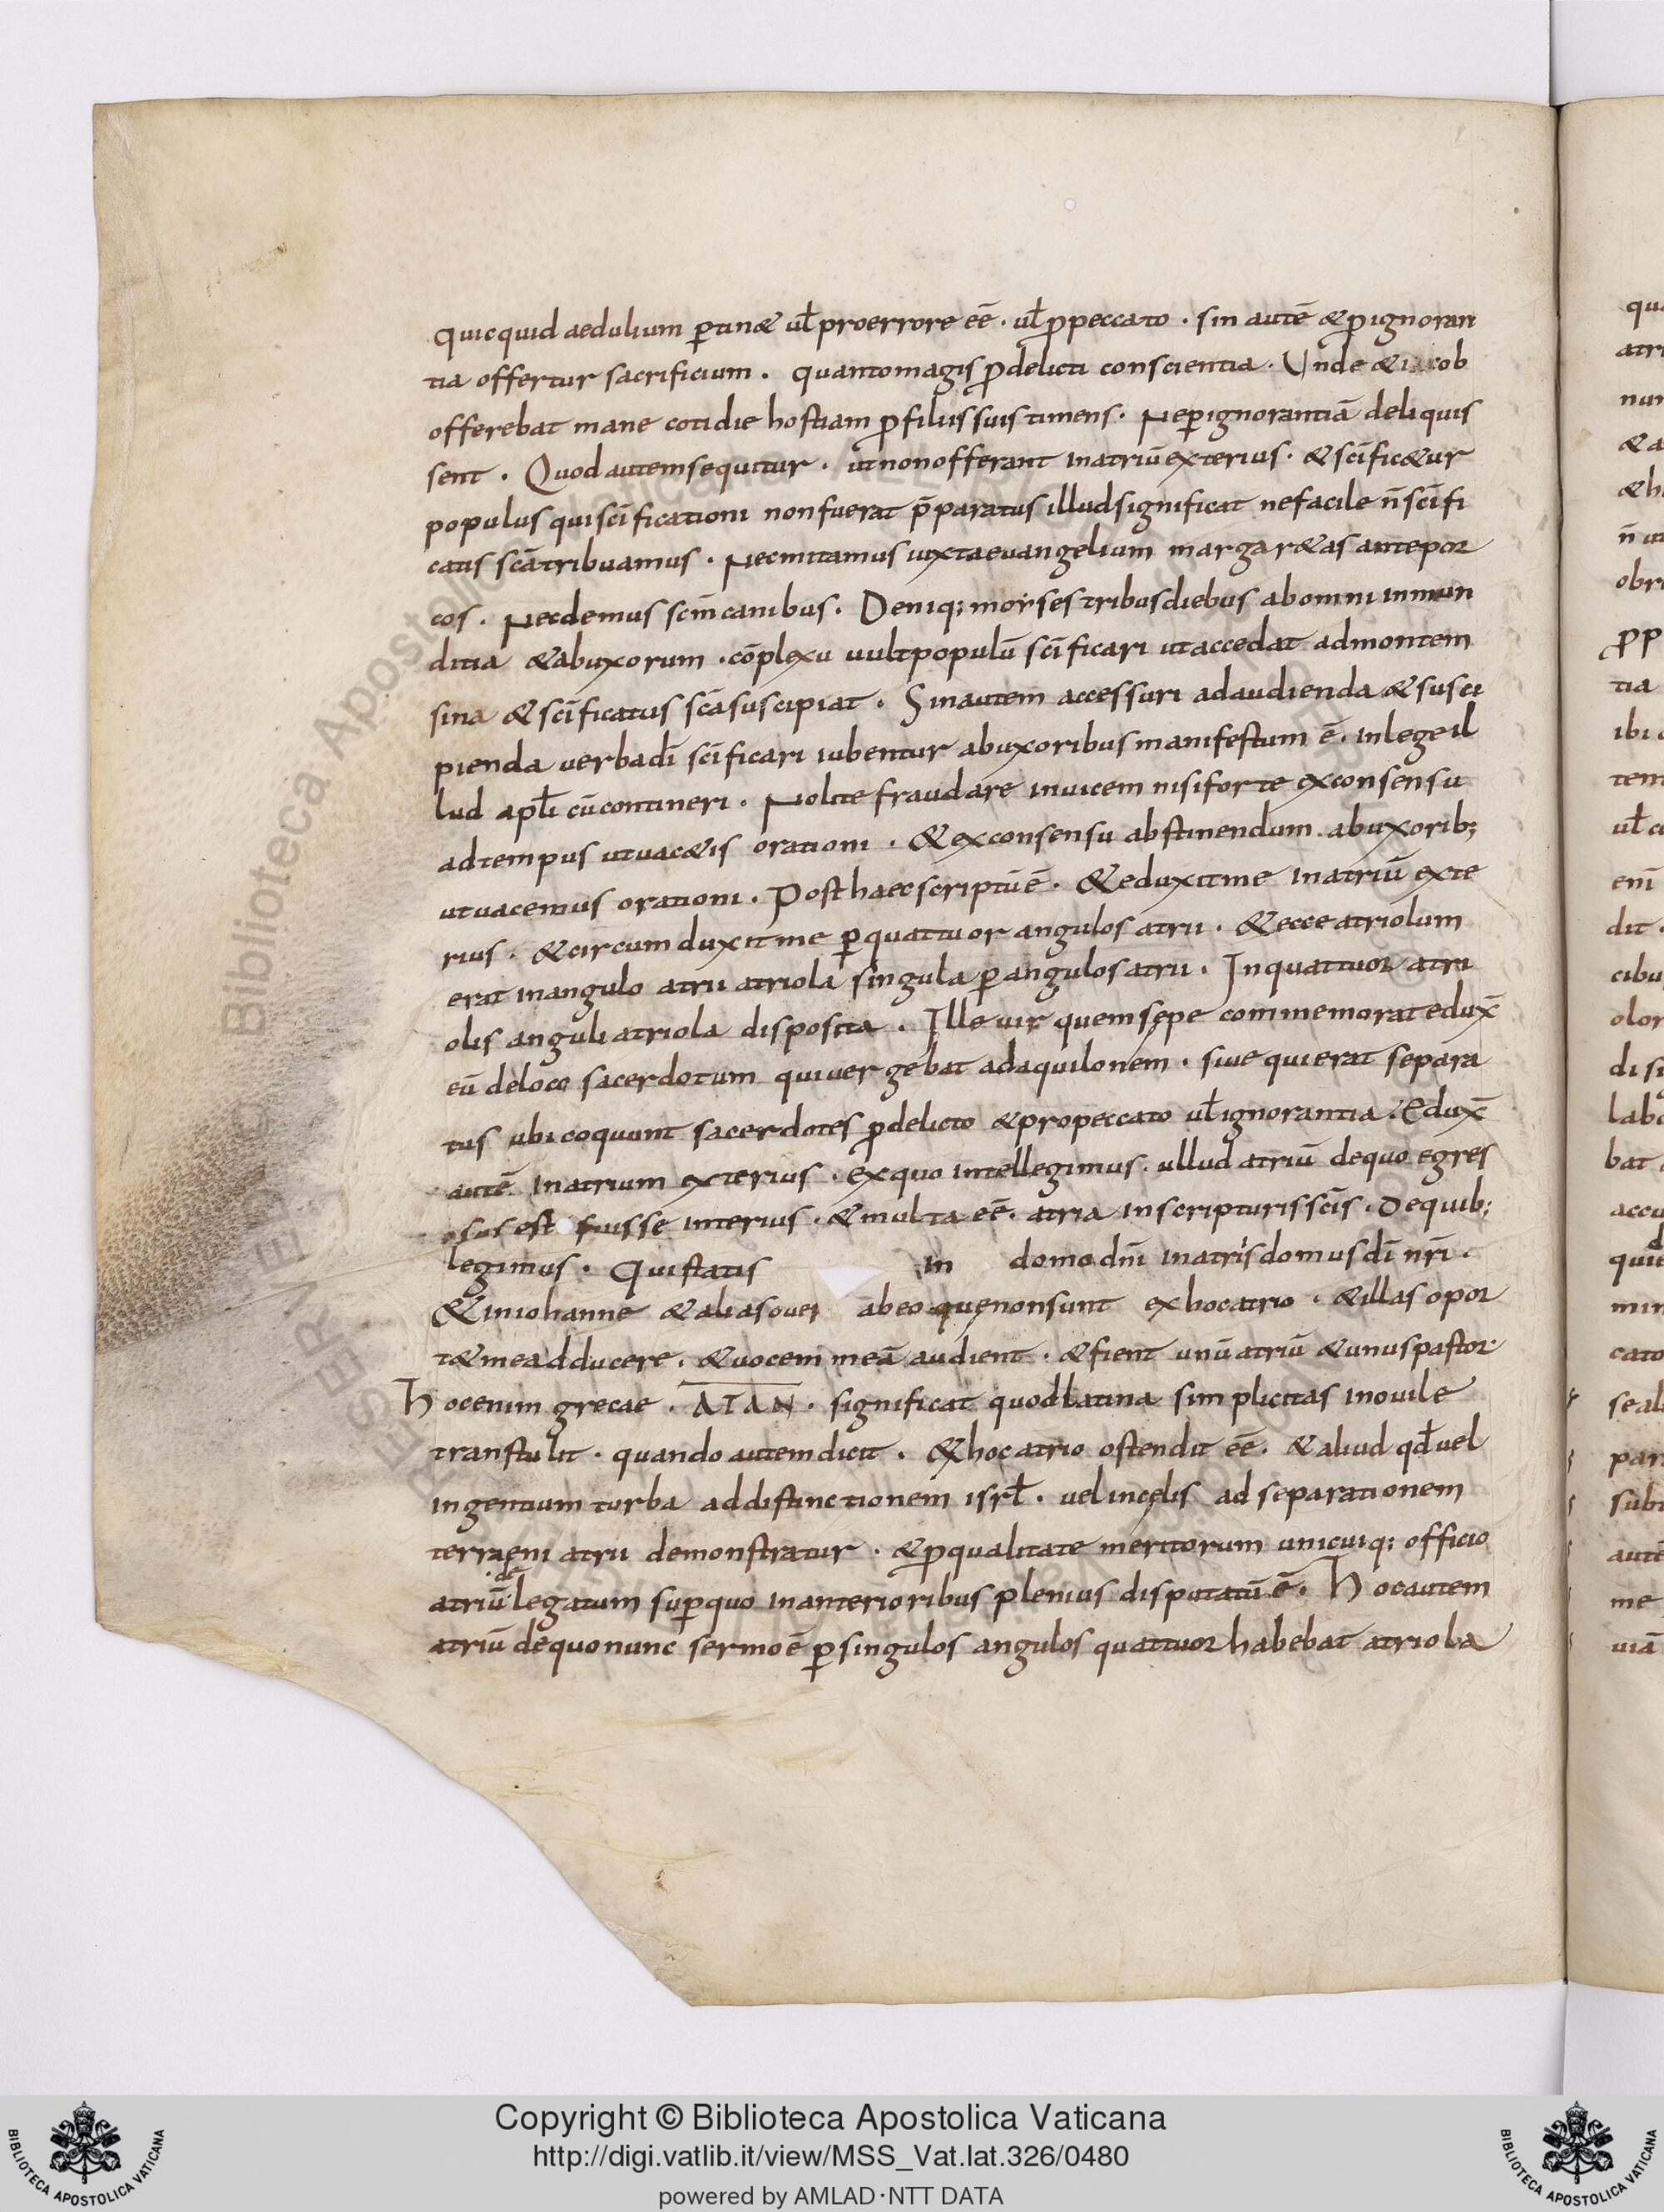 quicquid aedulium ꝑtin& ul̄ proerrore eē · ul̄ ꝓpeccato · sin autē &ꝓignoran
tia offertur sacrificium . quantomagis ꝓdelicti conscientia · Unde & iacob
offerebat mane cotidie hostiam ꝓfiliis suis timens · Neꝑignorantiā deliquis
sent . Quod autem sequitur · ut non offerant inatriū exterius · & sc̄ific&ur
populus qui sc̄ificationi non fuerat p̄paratus illud significat ne facile n̄ sc̄ifi
catis sc̄a tribuamus · Nec mittamus iuxta euangelium margar&as ante por
cos . Nec demus sc̄m canibus . Deniq; moyses tribus diebus ab omni inmun
ditia & ab uxorum · cōplexu uult populū sc̄ificari ut accedat ad montem
sina & sc̄ificatus sc̄a suscipiat . Sin autem accessuri ad audienda & susci
pienda uerba dī sc̄ificari iubentur ab uxoribus manifestum ē . in lege il
lud apl̄i cū contineri . Nolite fraudare inuicem nisi forte ex consensu
ad tempus ut uac&is orationi . & ex consensu abstinendum ab uxorib;
ut uacemus orationi . Post haec scriptū ē . & eduxit me in atriū exte
rius . & circumduxit me ꝑ quattuor angulos atrii . & ecce atriolum
erat in angulo atrii atriola singula ꝑ angulos atrii . In quattuor atri
olis anguli atriola disposita . Ille uir quem sępe commemorat edux̄
eū de loco sacerdotum qui uergebat ad aquilonem . siue qui erat separa
tus ubi coquunt sacerdotes ꝓdelicto & propeccato ul̄ ignorantia . Edux̄
autē in atrium exterius . ex quo intellegimus . ullud atriū de quo egres
sus est fuisse interius . & multa eē . atria in scripturis sc̄is . De quib;
legimus . Qui statis in domo dn̄i in atris domus dī nr̄i .
& in iohanne & alias oues abeo quę non sunt ex hoc atrio . & illas opor
t& me adducere . & uocem meā audient . & fient unū atriū & unus pastor ·
Hoc enim grecae . ΑΤΑΝ . significat quod latina simplicitas in ouile
transtulit . quando autem dicit . ex hoc atrio ostendit eē . & aliud qd̄ uel
in gentium turba ad distinctionem isrl̄ . uel in cęlis ad separationem
terraeni atrii demonstratur . &ꝓqualitate meritorum unicuiq; officio
de
atriū legatum suꝑquo in anterioribus plenius disputatū ē . Hoc autem
atriū de quo nunc sermo ē ꝑ singulos angulos quattuor habebat atriola
Copyright © Biblioteca Apostolica Vaticana
http://digi.vatlib.it/view/MSS_Vat.lat.326/0480
powered by AMLAD·NTT DATA
BIBLIOTECA APOSTOLICA VATICANA
BIBLIOTECA APOSTOLICA VATICANA